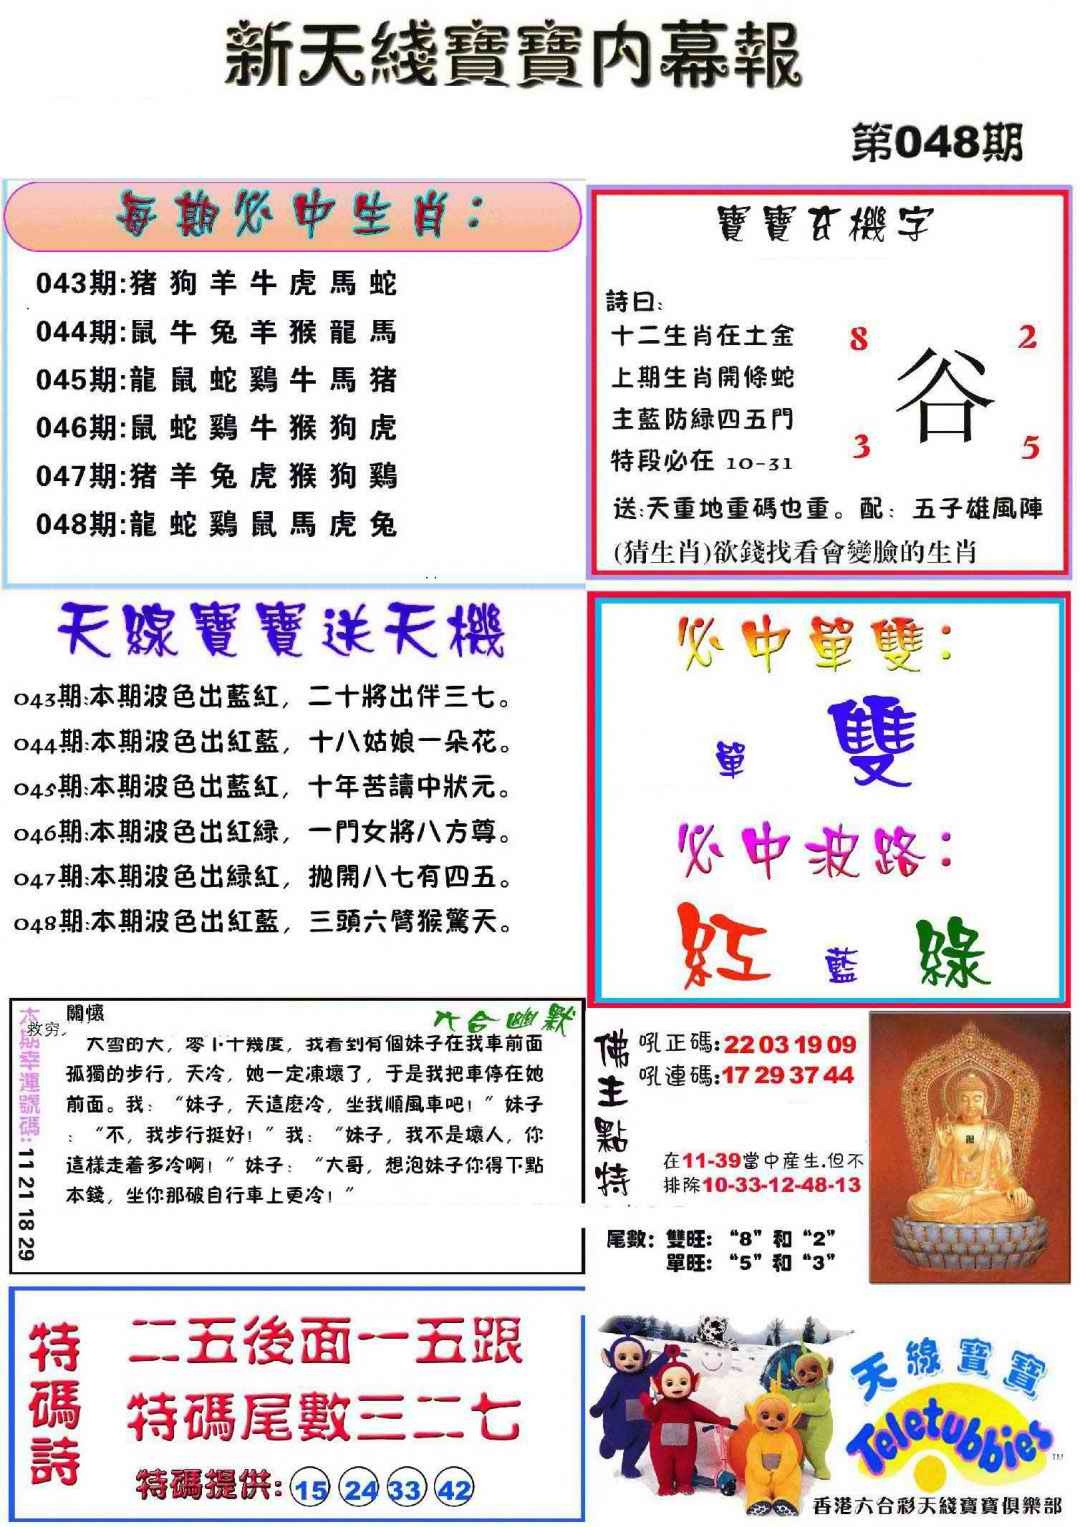 新天綫寶寶内幕報
第048期
每期必中生肖：
043期:猪 狗 羊 牛 虎 馬 蛇
044期:鼠 牛 兔 羊 猴 龍 馬
045期:龍 鼠 蛇 鷄 牛 馬 猪
046期:鼠 蛇 鷄 牛 猴 狗 虎
047期:猪 羊 兔 虎 猴 狗 鷄
048期:龍 蛇 鷄 鼠 馬 虎 兔
寶寶玄機字
詩曰:
十二生肖在土金
上期生肖開條蛇
主藍防緑四五門
特段必在 10-31
8 2
谷
3 5
送:天重地重碼也重。配：五子雄風陣
(猜生肖)欲錢找看會變臉的生肖
天線寶寶送天機
043期:本期波色出藍紅，二十將出伴三七。
044期:本期波色出紅藍，十八姑娘一朵花。
045期:本期波色出藍紅，十年苦讀中狀元。
046期:本期波色出紅緑，一門女將八方尊。
047期:本期波色出緑紅，抛開八七有四五。
048期:本期波色出紅藍，三頭六臂猴驚天。
必中單雙：
單 雙
必中波路：
紅 藍 綠
本期幸運號碼:11 21 18 29
關懷
救穷。
六合幽默
大雪的天，零下十幾度，我看到有個妹子在我車前面
孤獨的步行，天冷，她一定凍壞了，于是我把車停在她
前面。我：“妹子，天這麽冷，坐我順風車吧！”妹子
：“不，我步行挺好！”我：“妹子，我不是壞人，你
這樣走着多冷啊！”妹子：“大哥，想泡妹子你得下點
本錢，坐你那破自行車上更冷！”
佛主點特
吼正碼:22 03 19 09
吼連碼:17 29 37 44
在11-39當中産生.但不
排除10-33-12-48-13
尾數：雙旺：“8”和“2”
單旺：“5”和“3”
特碼詩
二五後面一五跟
特碼尾數三二七
特碼提供: 15 24 33 42
天線寶寶
Teletubbies
TM
香港六合彩天綫寶寶俱樂部